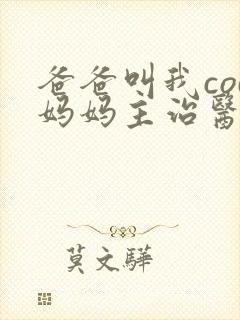 爸爸叫我co
妈妈主治醫
莫文驊